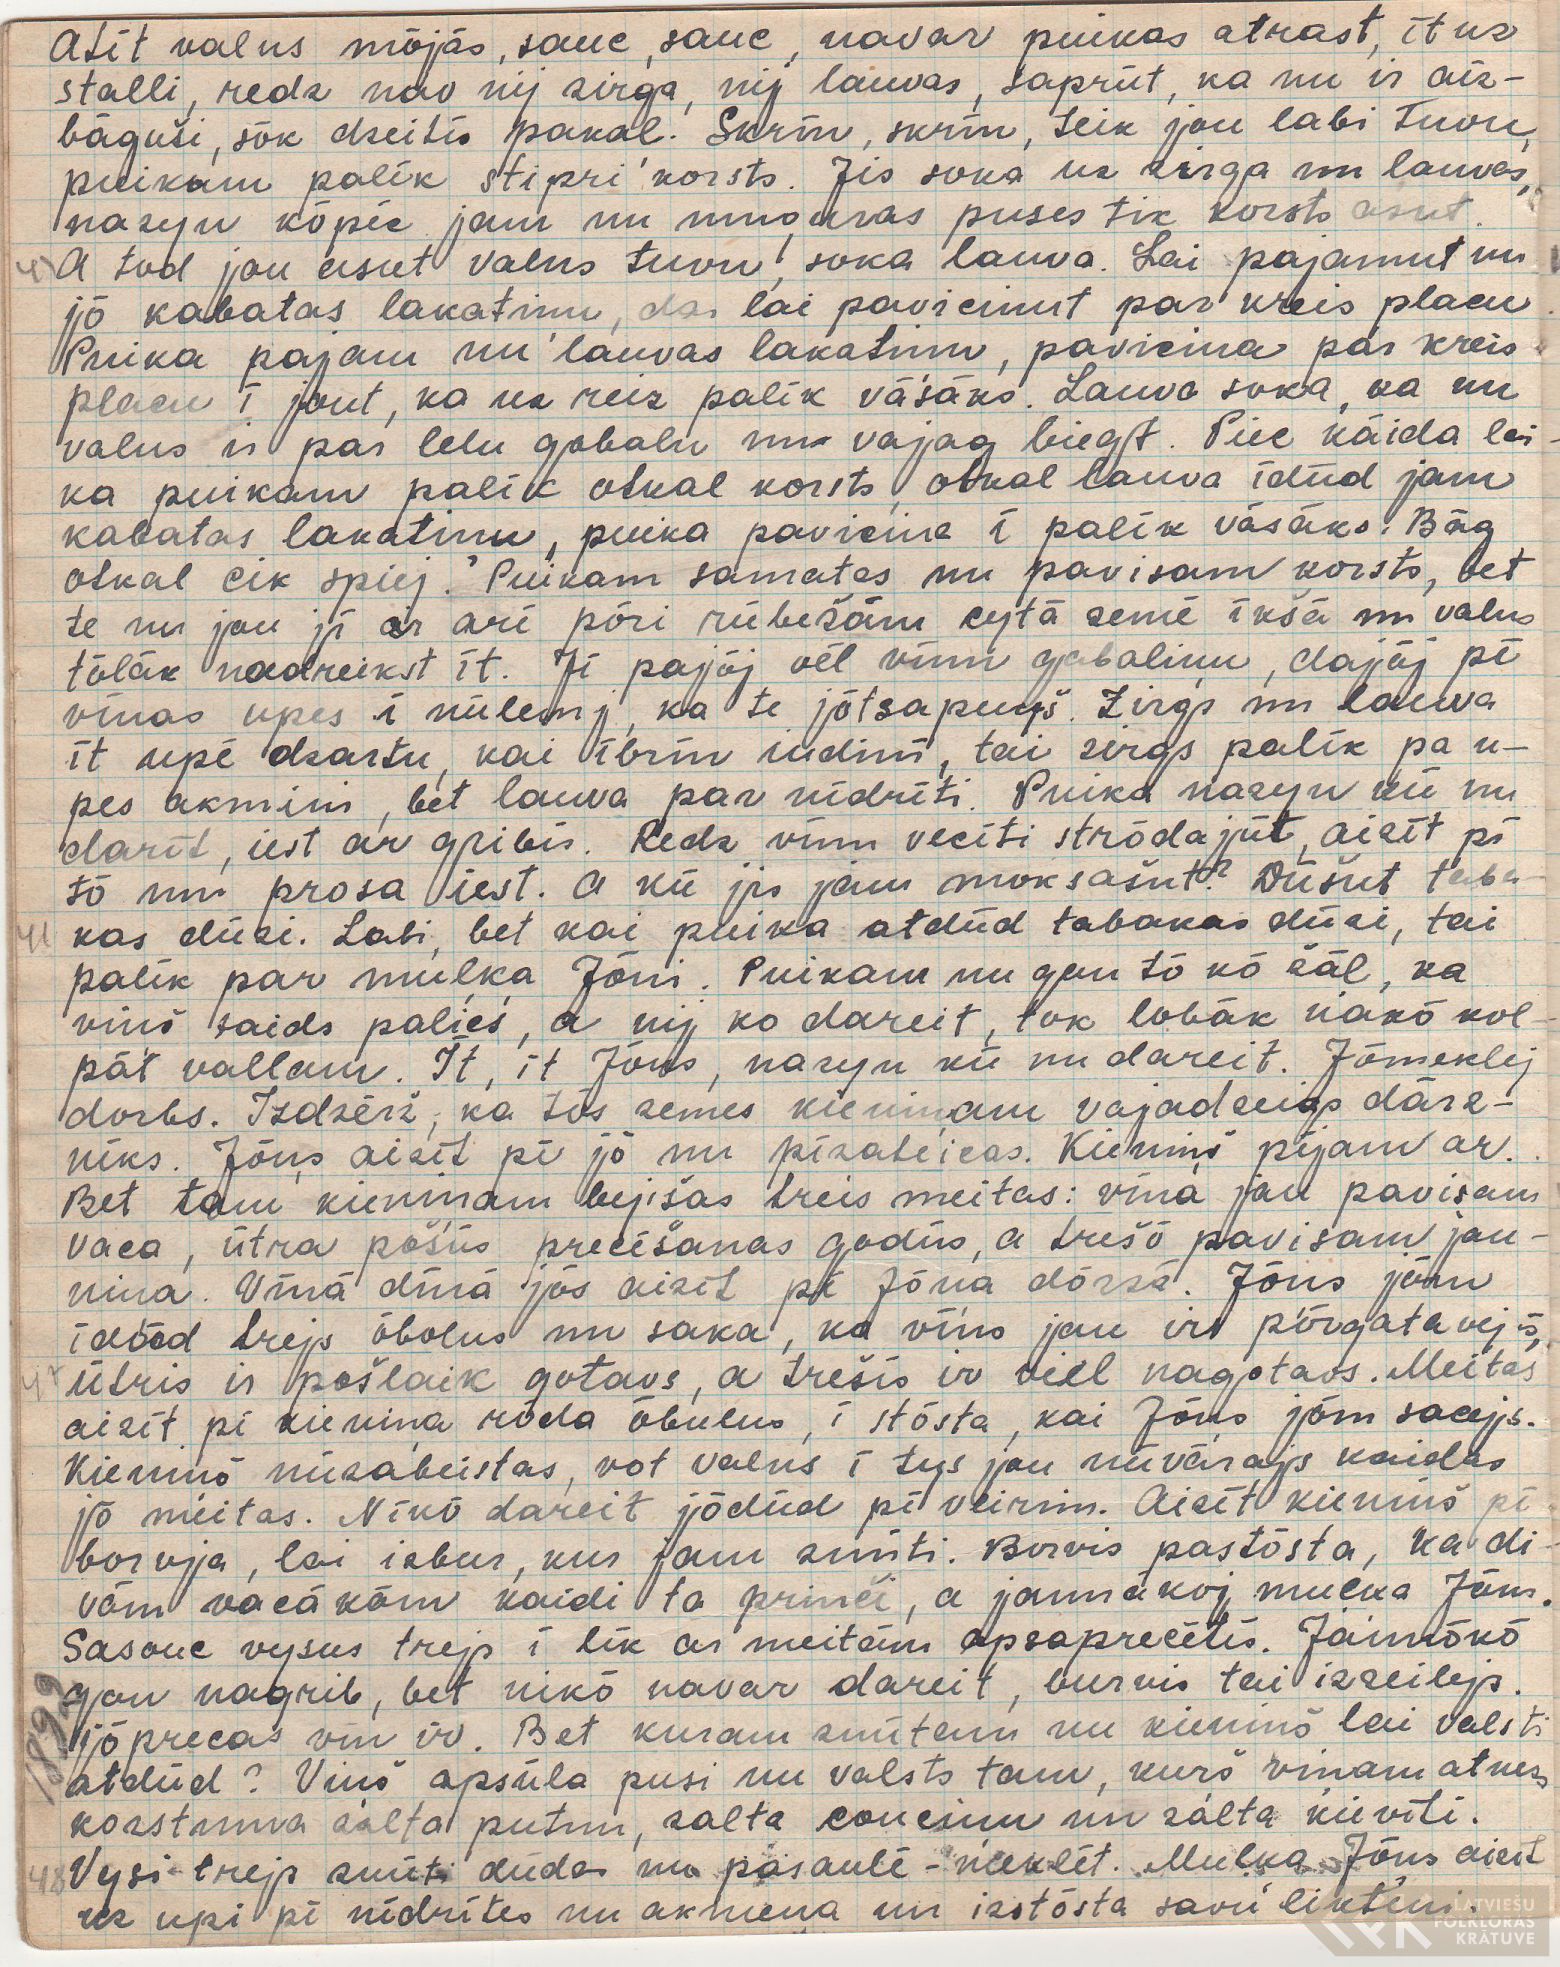 Atīt valns mōjās, sauc, sauc, navar puikas atrast, īt uz
stalli, redz nav nij zirga, nij lauvas, saprūt, ka nu ir aiz-
bāguši, sōk dzeitīs pakaļ. Skrīn, skrīn, teik jau labi tuvu,
puikam palīk stipri korsts. Jis soka uz zirga un lauvas,
nazyn kōpēc jam nu muguras puses tik korsts asut.
A tod jau asut valns tuvu, soka lauva. Lai pajamut nu
jō kabatas lakatinu, lai pavicinut par kreis placu
Puika pajam nu lauvas lakatinu, pavicina par kreis
placu ī jout, ka uz reiz palīk vāsāks. Lauva soka, ka nu
valns ir par lelu gobalu nu vajag biegt. Pēc kāida lai-
ka puikam palīk otkal korsts, otkal lauva īdūd jam
kabatas lakatinu, puika pavicina ī palīk vāsāks. Bāg
otkal cik spiej. Puikam samatas nu pavisam korsts, bet
te nu jau jī ar arī pōri rūbežām cytā zemē īkšā un valns
tōlāk nadreikst īt. Jī pajōj vēl vīnu gabalinu, dajōj pī
vīnas upes ī nūlemj, ka te jōtsapuņš. Zirgs un lauva
īt upē dzartu, kai ībrīn iudinī, tai zirgs palīk pa u-
pes akmini, bet lauva par nīdrīti. Puika nazyn kū nu
darīt, iest ar gribīs. Redz vīnu vecīti strōdajūt, aizīt pī
tō un prosa iest. A kū jis jam moksašut? Dūšut taba-
kas dūzi. Labi, bet kai puika atdūd tabakas dūzi, tai
palīk par muļka Jōni. Puikam nu gan tō kō žāl, ka
vīnš saids palics, a nij ko dareit, tok lobāk nakō kol-
pāt vallam. Īt, īt Jōns, nazyn kū nu dareit. Jōmeklej
dorbs. Izdzērž, ka tōs zemes kieninam vajadzeigs dārz-
niks. Jōns aizīt pī jō nu pīzateicas. Kieninš pījam ar.
Bet tam kieninam bejišas treis meitas: vīna jau pavisam
vaca, ūtra pošūs precīšanas godūs, a trešō pavisam jau-
nina. Vīnā dīnā jōs aizīt pī Jōna dōrzā. Jōns jōm
īdōd trejs ōbolus nu saka, ka vīns jau ir pōrgatavejs,
ūtris ir pošlaik gotavs, a trešīs ir viel nagotavs. Meitas
aizīt pī kienina rōda ōbulus, ī stōsta, kai Jōns jōm sacejs.
Kieninš nūzabeistas, vot valns ī tys jau nūvārajs kaidas
jō meitas. Nīkō dareit jōdūd pī veirim. Aizīt kieninš pī
borvja, lai izbur, kur jam znūti. Burvis pastōsta, ka di-
vōm vacākōm kaidi ta princi, a jaunākoj muļka Jōns.
Sasauc vysus trejs ī līk ar meitām apsaprecētīs. Jaunōkō
gan nagrib, bet nikō navar dareit, burvis tai izzeilejs.
jōprecas vin ir. Bet kuram znūtam nu kieninš lai valsti
atdūd? Vinš apsūla pusi nu valsts tam, kurš vinam atness
korstuma zalta putnu, zalta caucinu un zalta kieviti.
Vysi trejs znūti dūdas nu pasaulē-meklēt. Muļka Jōns aizīt
uz upi pī nīdrītes nu akmeņa un izstōsta savu likteni.
1899
41
48
LATVIEŠU
FOLKLORAS
KRĀTUVE